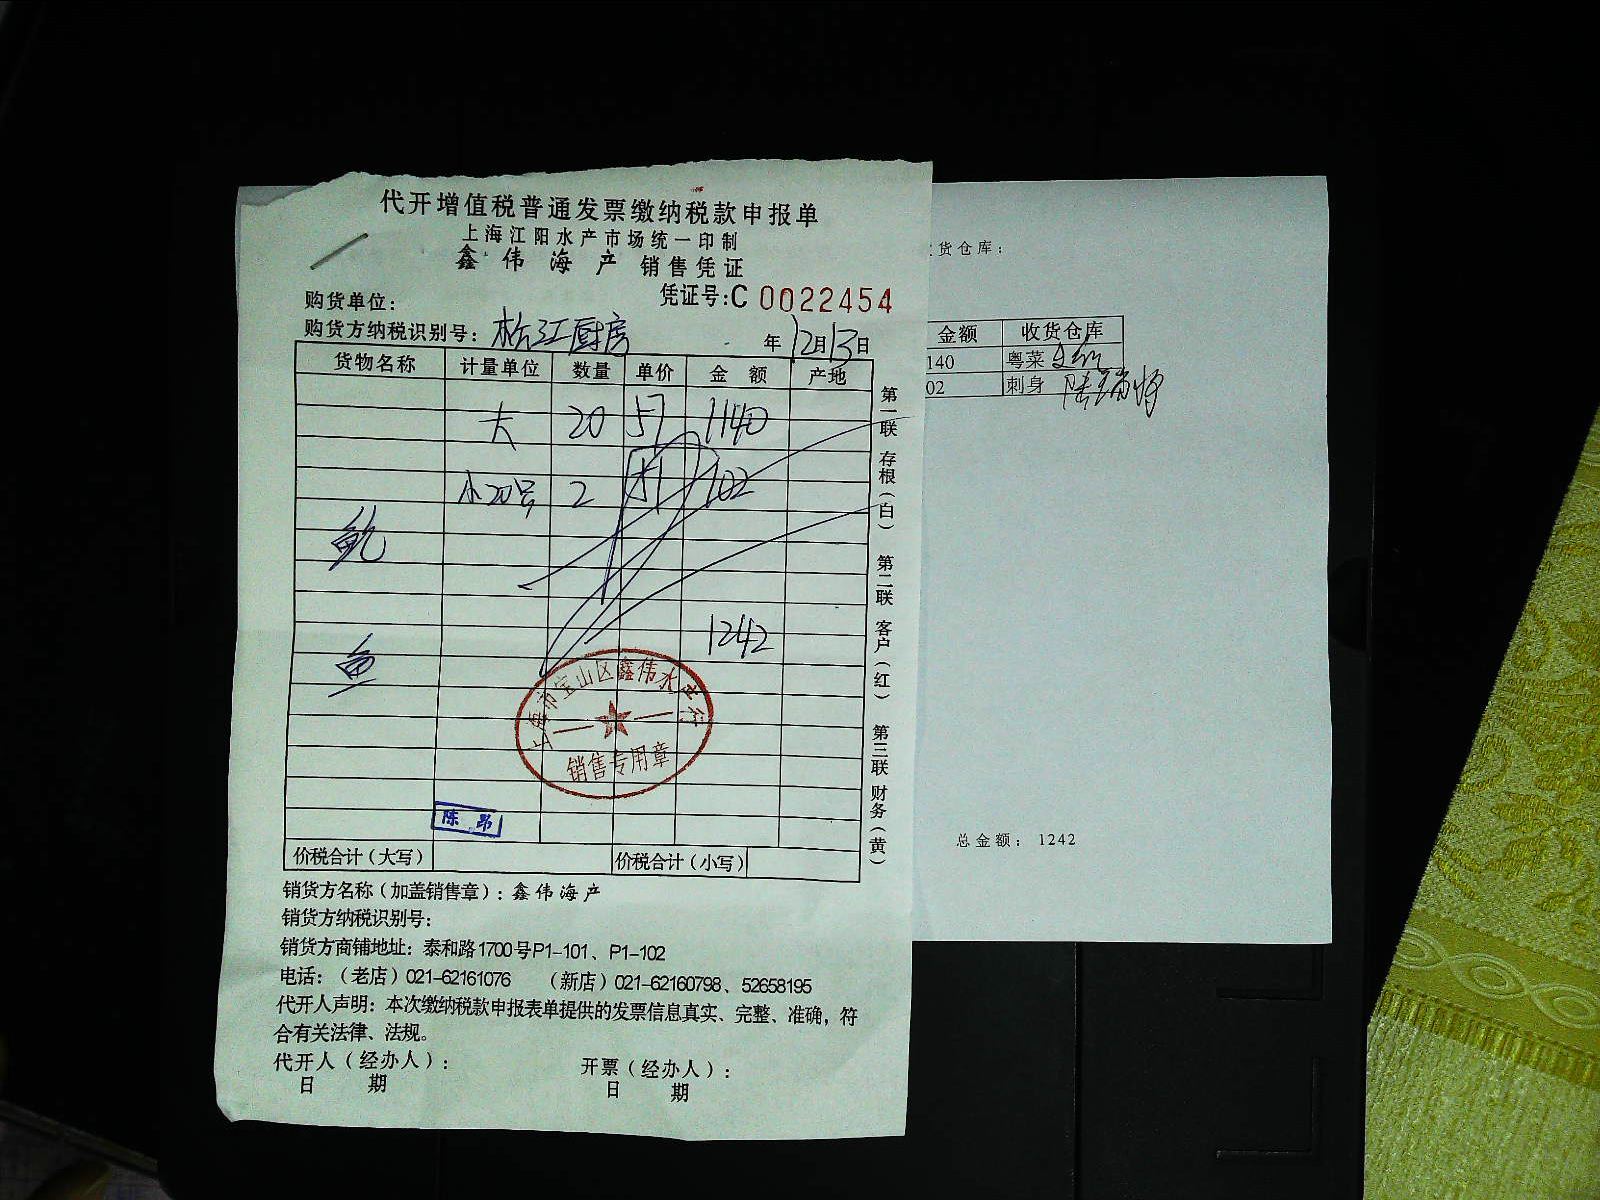 代开增值税普通发票缴纳税款申报单
上海江阳水产市场统一印制
鑫伟海产 销售凭证
购货单位: 凭证号:C 0022454
购货方纳税识别号: 松江厨房 年12月13日
货物名称 计量单位 数量 单价 金额 产地
大 20 57 1140
小20号 2 51 102
鲍
鱼
1242
上海市宝山区鑫伟水产行
销售专用章
陈昂
价税合计(大写) 价税合计(小写)
第一联 存根(白) 第二联 客户(红) 第三联 财务(黄)
销货方名称(加盖销售章): 鑫伟海产
销货方纳税识别号:
销货方商铺地址: 泰和路1700号P1-101、P1-102
电话:(老店)021-62161076 (新店)021-62160798、52658195
代开人声明: 本次缴纳税款申报表单提供的发票信息真实、完整、准确,符
合有关法律、法规。
代开人(经办人): 开票(经办人):
日 期 日 期
货仓库:
金额 收货仓库
140 粤菜
02 刺身
总金额: 1242